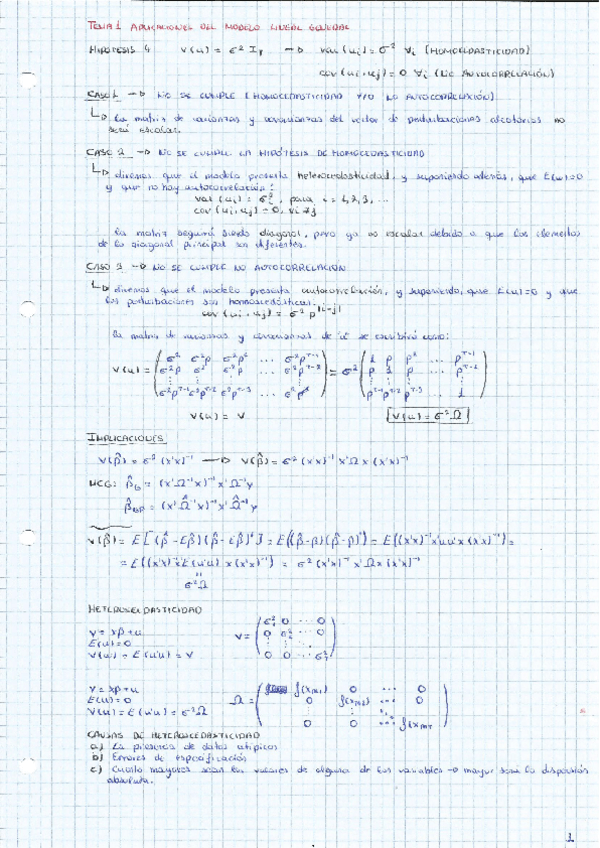 TEMA 1 APLICACIONES DEL MODELO LINEAL GENERAL
HIPÓTESIS 4 V(u) = σ² I_T → var(u_i) = σ² ∀i (HOMOCEDASTICIDAD)
cov(u_i, u_j) = 0 ∀i (NO AUTOCORRELACIÓN)
CASO 1 → NO SE CUMPLE (HOMOCEDASTICIDAD Y/O NO AUTOCORRELACIÓN)
↳ La matriz de varianzas y covarianzas del vector de perturbaciones aleatorias no
será escalar.
CASO 2 → NO SE CUMPLE LA HIPÓTESIS DE HOMOCEDASTICIDAD
↳ diremos que el modelo presenta heterocedasticidad, y suponiendo además, que E(u)=0
y que no hay autocorrelación:
var(u_i) = σ_i², para i = 1, 2, 3, ...
cov(u_i, u_j) = 0, ∀i≠j
La matriz seguirá siendo diagonal, pero ya no escalar debido a que los elementos
de la diagonal principal son diferentes.
CASO 3 → NO SE CUMPLE NO AUTOCORRELACIÓN
↳ diremos que el modelo presenta autocorrelación, y suponiendo, que E(u)=0 y que
las perturbaciones son homocedásticas:
cov(u_i, u_j) = σ² ρ^|i-j|
La matriz de varianzas y covarianzas de u se escribirá como:
V(u) = (σ² σ²ρ σ²ρ² ... σ²ρ^T-1 = σ² (1 ρ ρ² ... ρ^T-1
σ²ρ σ² σ²ρ ... σ²ρ^T-2 ρ 1 ρ ... ρ^T-2
σ²ρ^T-1 σ²ρ^T-2 σ²ρ^T-3 ... σ²) ρ^T-1 ρ^T-2 ρ^T-3 ... 1)
V(u) = V V(u) = σ²Ω
IMPLICACIONES
V(β̂) = σ² (x'x)⁻¹ → V(β̂) = σ² (x'x)⁻¹ x'Ωx (x'x)⁻¹
MCG: β̂_G = (x'Ω⁻¹x)⁻¹ x'Ω⁻¹y
= (x'Ω̂⁻¹x)⁻¹ x'Ω̂⁻¹y
V(β̂) = E[(β̂ - Eβ̂)(β̂ - Eβ̂)'] = E((β̂-β)(β̂-β)') = E((x'x)⁻¹x'uu'x(x'x)⁻¹) =
= E((x'x)⁻¹x'E(u'u) x(x'x)⁻¹) = σ²(x'x)⁻¹ x'Ωx(x'x)⁻¹
σ²Ω
HETEROCEDASTICIDAD
Y = Xβ + u V = (σ₁² 0 ... 0
E(u) = 0 0 σ₂² ... 0
V(u) = E(u'u) = V 0 0 ... σ_T²)
Y = Xβ + u Ω = (f(x_m1) 0 ... 0
E(u) = 0 0 f(x_m2) ... 0
V(u) = E(u'u) = σ²Ω 0 0 ... f(x_mT)
CAUSAS DE HETEROCEDASTICIDAD
a) La presencia de datos atípicos
b) Errores de especificación
c) Cuanto mayores sean los valores de alguna de las variables → mayor será la dispersión
absoluta.
1